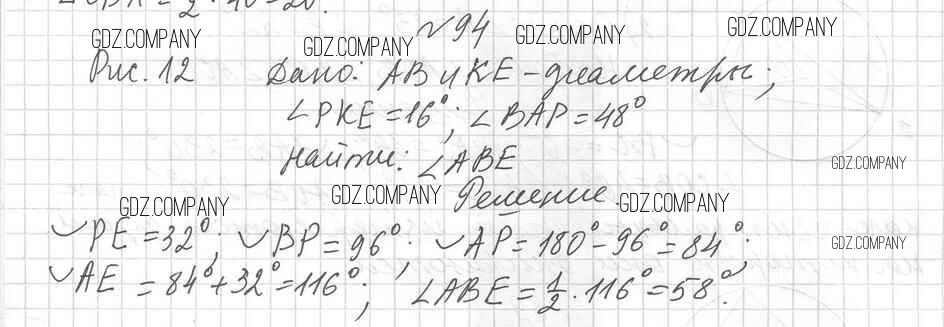 ∠CBA = 2 · 40 = 20°.
№94
GDZ.COMPANY GDZ.COMPANY GDZ.COMPANY GDZ.COMPANY
Рис. 12 Дано: AB и KE - диаметры;
∠PKE = 16°; ∠BAP = 48°
Найти: ∠ABE
GDZ.COMPANY
Решение.
GDZ.COMPANY GDZ.COMPANY GDZ.COMPANY
◡PE = 32°; ◡BP = 96°; ◡AP = 180° - 96° = 84°;
GDZ.COMPANY
◡AE = 84° + 32° = 116°; ∠ABE = 1/2 · 116° = 58°.